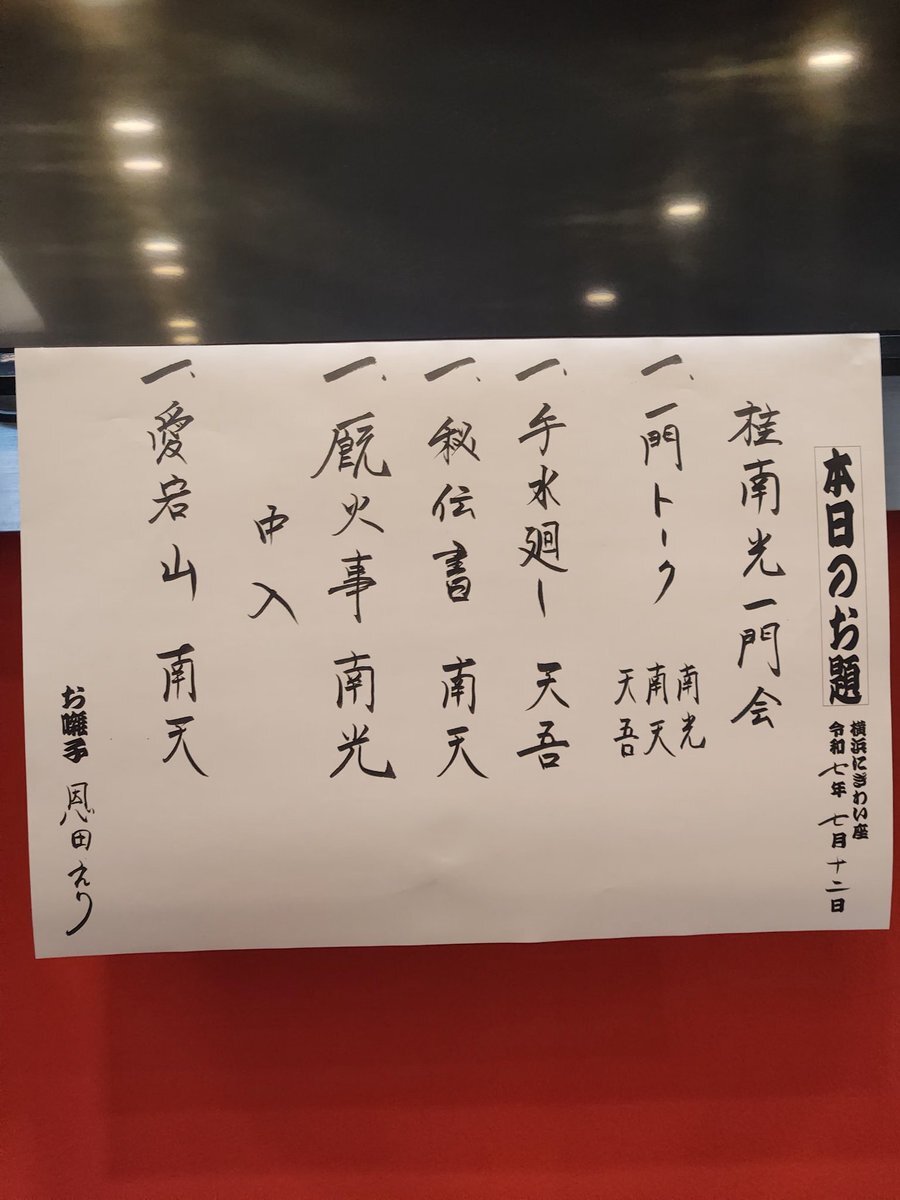 本日のお題
横浜にぎわい座
令和七年 七月十二日
桂南光一門会
一、一門トーク 南光
南天
天吾
一、手水廻し 天吾
一、秘伝書 南天
一、厩火事 南光
中入
一、愛宕山 南天
お囃子 恩田えり